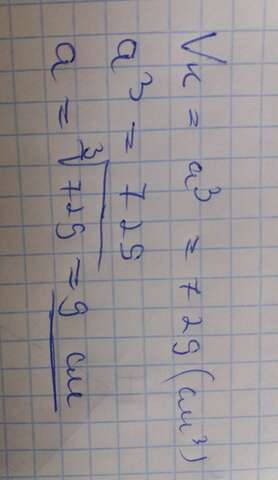 Vк = a³ = 729 (см³)
a³ = 729
a = ∛729 = 9 см